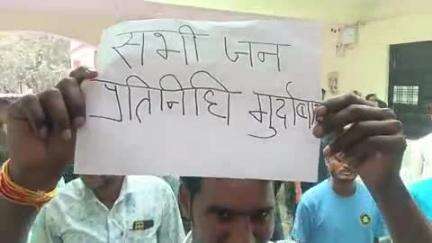 सभी जन
प्रतिनिधि मुर्दाबाद